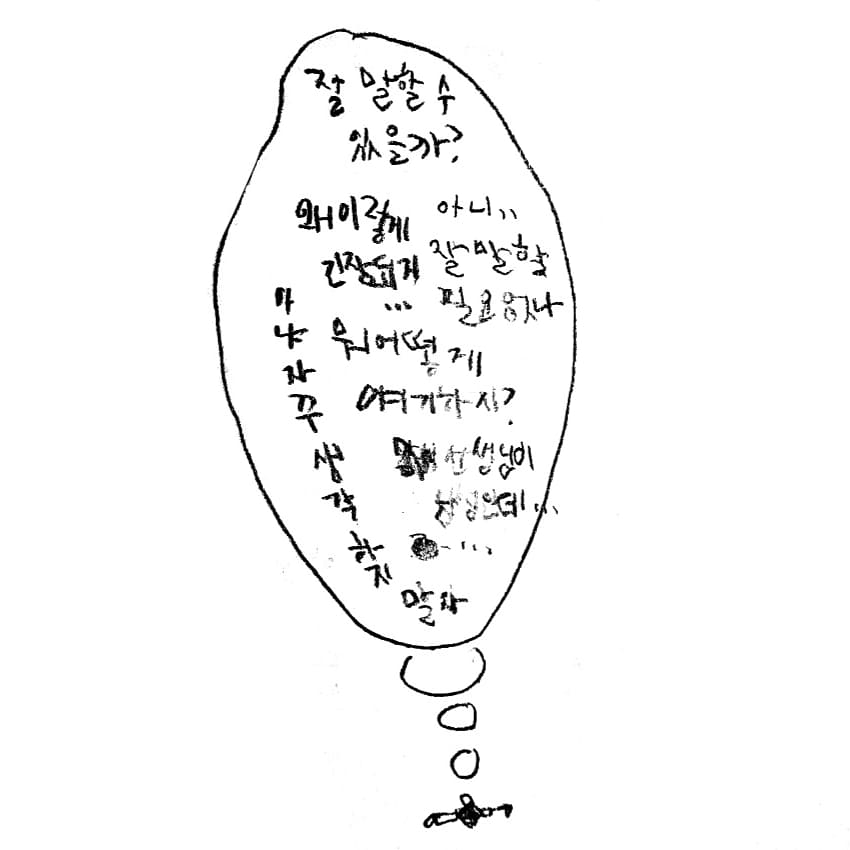 잘 말할 수
있을까?
왜 이렇게
긴장되지
...
아니,,
잘 말할
필요 없잖아
뭐 어떻게
얘기하지?
선생님이
자꾸
생각
하지
말자